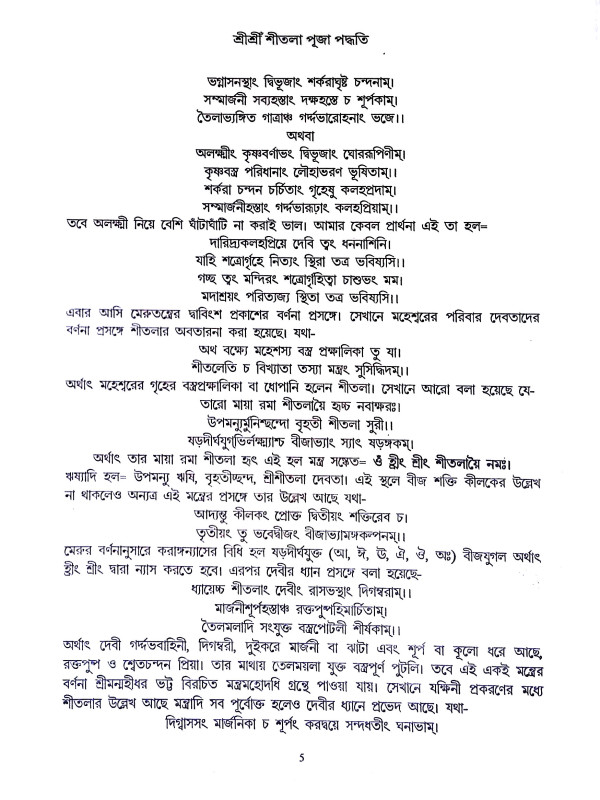 শ্রীশ্রীঁ শীতলা পূজা পদ্ধতি
ভগ্নাসনস্থাং দ্বিভূজাং শর্করাঘৃষ্ট চন্দনাম্।
সম্মার্জনী সব্যহস্তাং দক্ষহস্তে চ শূর্পকাম্।
তৈলাভ্যঙ্গিত গাত্রাঞ্চ গর্দ্দভারোহনাং ভজে।।
অথবা
অলক্ষ্মীং কৃষ্ণবর্ণাভং দ্বিভূজাং ঘোররূপিণীম্।
কৃষ্ণবস্ত্র পরিধানাং লৌহাভরণ ভূষিতাম্।
শর্করা চন্দন চর্চিতাং গৃহেষু কলহপ্রদাম্।
সম্মার্জনীহস্তাং গর্দ্দভারূঢ়াং কলহপ্রিয়াম্।।
তবে অলক্ষ্মী নিয়ে বেশি ঘাঁটাঘাঁটি না করাই ভাল। আমার কেবল প্রার্থনা এই তা হল=
দারিদ্র্যকলহপ্রিয়ে দেবি ত্বং ধননাশিনি।
যাহি শত্রোর্গৃহে নিত্যং স্থিরা তত্র ভবিষ্যসি।
গচ্ছ ত্বং মন্দিরং শত্রোর্গৃহিত্বা চাশুভং মম।
মদাশ্রয়ং পরিত্যজ্য স্থিতা তত্র ভবিষ্যসি।।
এবার আসি মেরুতন্ত্রের দ্বাবিংশ প্রকাশের বর্ণনা প্রসঙ্গে। সেখানে মহেশ্বরের পরিবার দেবতাদের
বর্ণনা প্রসঙ্গে শীতলার অবতারনা করা হয়েছে। যথা-
অথ বক্ষ্যে মহেশস্য বস্ত্র প্রক্ষালিকা তু যা।
শীতলেতি চ বিখ্যাতা তস্যা মন্ত্রং সুসিদ্ধিদম্।।
অর্থাৎ মহেশ্বরের গৃহের বস্ত্রপ্রক্ষালিকা বা ধোপানি হলেন শীতলা। সেখানে আরো বলা হয়েছে যে-
তারো মায়া রমা শীতলায়ৈ হৃচ্চ নবাক্ষরঃ।
উপমন্যুর্মুনিশ্ছন্দো বৃহতী শীতলা সুরী।।
ষড়দীর্ঘযুগ্ভির্লক্ষ্ম্যাশ্চ বীজাভ্যাং স্যাৎ ষড়ঙ্গকম্।
অর্থাৎ তার মায়া রমা শীতলা হৃৎ এই হল মন্ত্র সঙ্কেত= ওঁ হ্রীং শ্রীং শীতলায়ৈ নমঃ।
ঋষ্যাদি হল= উপমন্যু ঋষি, বৃহতীচ্ছন্দ, শ্রীশীতলা দেবতা। এই স্থলে বীজ শক্তি কীলকের উল্লেখ
না থাকলেও অন্যত্র এই মন্ত্রের প্রসঙ্গে তার উল্লেখ আছে যথা-
আদ্যন্তু কীলকং প্রোক্ত দ্বিতীয়ং শক্তিরেব চ।
তৃতীয়ং তু ভবেদ্বীজং বীজাভ্যামঙ্গকল্পনম্।।
মেরুর বর্ণনানুসারে করাঙ্গন্যাসের বিধি হল ষড়দীর্ঘযুক্ত (আ, ঈ, ঊ, ঐ, ঔ, অঃ) বীজযুগল অর্থাৎ
হ্রীং শ্রীং দ্বারা ন্যাস করতে হবে। এরপর দেবীর ধ্যান প্রসঙ্গে বলা হয়েছে-
ধ্যায়েচ্চ শীতলাং দেবীং রাসভস্থাং দিগম্বরাম্।।
মার্জনীশূর্পহস্তাঞ্চ রক্তপুষ্পহিমার্চিতাম্।
তৈলমলাদি সংযুক্ত বস্ত্রপোটলী শীর্ষকাম্।।
অর্থাৎ দেবী গর্দ্দভবাহিনী, দিগম্বরী, দুইকরে মার্জনী বা ঝাটা এবং শূর্প বা কূলো ধরে আছে,
রক্তপুষ্প ও শ্বেতচন্দন প্রিয়া। তার মাথায় তেলময়লা যুক্ত বস্ত্রপূর্ণ পুটলি। তবে এই একই মন্ত্রের
বর্ণনা শ্রীমন্মহীধর ভট্ট বিরচিত মন্ত্রমহোদধি গ্রন্থে পাওয়া যায়। সেখানে যক্ষিনী প্রকরণের মধ্যে
শীতলার উল্লেখ আছে মন্ত্রাদি সব পূর্বোক্ত হলেও দেবীর ধ্যানে প্রভেদ আছে। যথা-
দিগ্বাসসং মার্জনিকা চ শূর্পং করদ্বয়ে সন্দধতীং ঘনাভাম্।
5